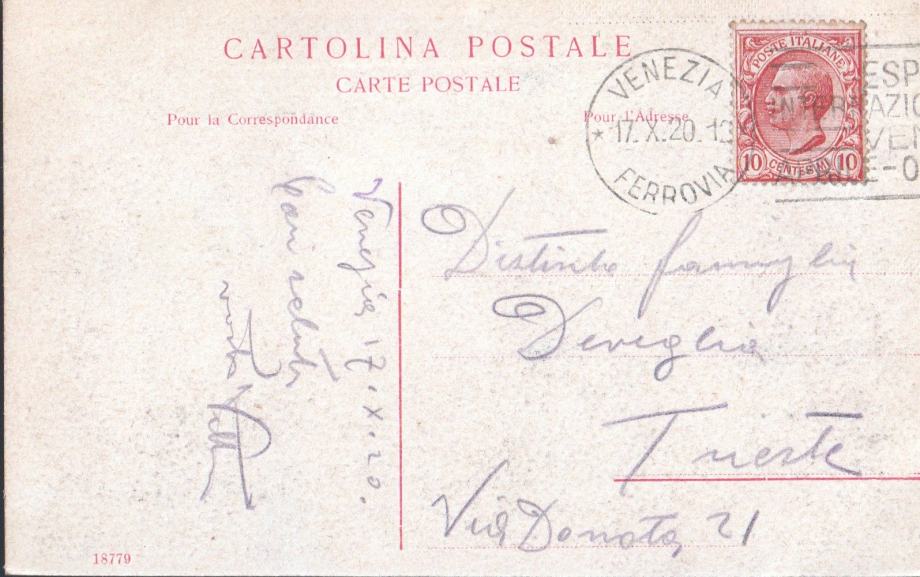 CARTOLINA POSTALE
CARTE POSTALE
Pour la Correspondance
Pour l'Adresse
VENEZIA
★ 17.X.20.
FERROVIA
POSTE ITALIANE
10 CENTESIMI 10
ESP
INTERNAZIO
VE
E-O
Venezia 17.X.20.
Cari saluti
Distinta famiglia
Deveglia
Trieste
Via Donota 21
18779